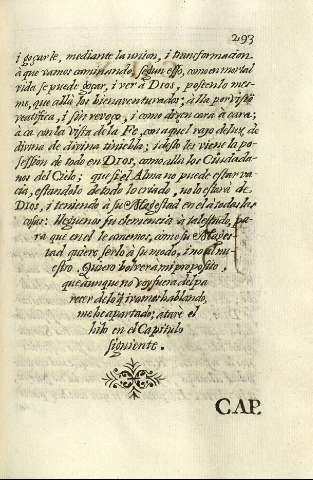 293
i goçarle, mediante la union, i transformacion
à que vamos caminando, segun esso, como en mortal
vida se puede goçar, i ver à Dios, posseerlo mes-
mo, que allà los bienaventurados; allà por visiõ
beatifica, i sin reboço, i como dicen cara à cara;
acà con la vista de la Fe, con aquel rayo de luz, de
divina de divina tiniebla; i desto les viene la po-
session de todo en Dios, como allà los Ciudada-
nos del Cielo; que si el Alma no puede estar va-
cia, estandolo de todo lo criado, no lo estarà de
Dios, i teniendo à su Magestad en el à todas las
cosas: lleguenos su clemencia à tal estado, pa-
ra que en el le amemos, como su Mages-
tad quiere serlo à su modo, i no al nu-
estro. Quiero bolver a mi proposito,
que aunque no voy fuera del pa-
recer de lo q̃ ivamos hablando,
me he apartado; atarè el
hilo en el Capitulo
siguiente.
CAP.